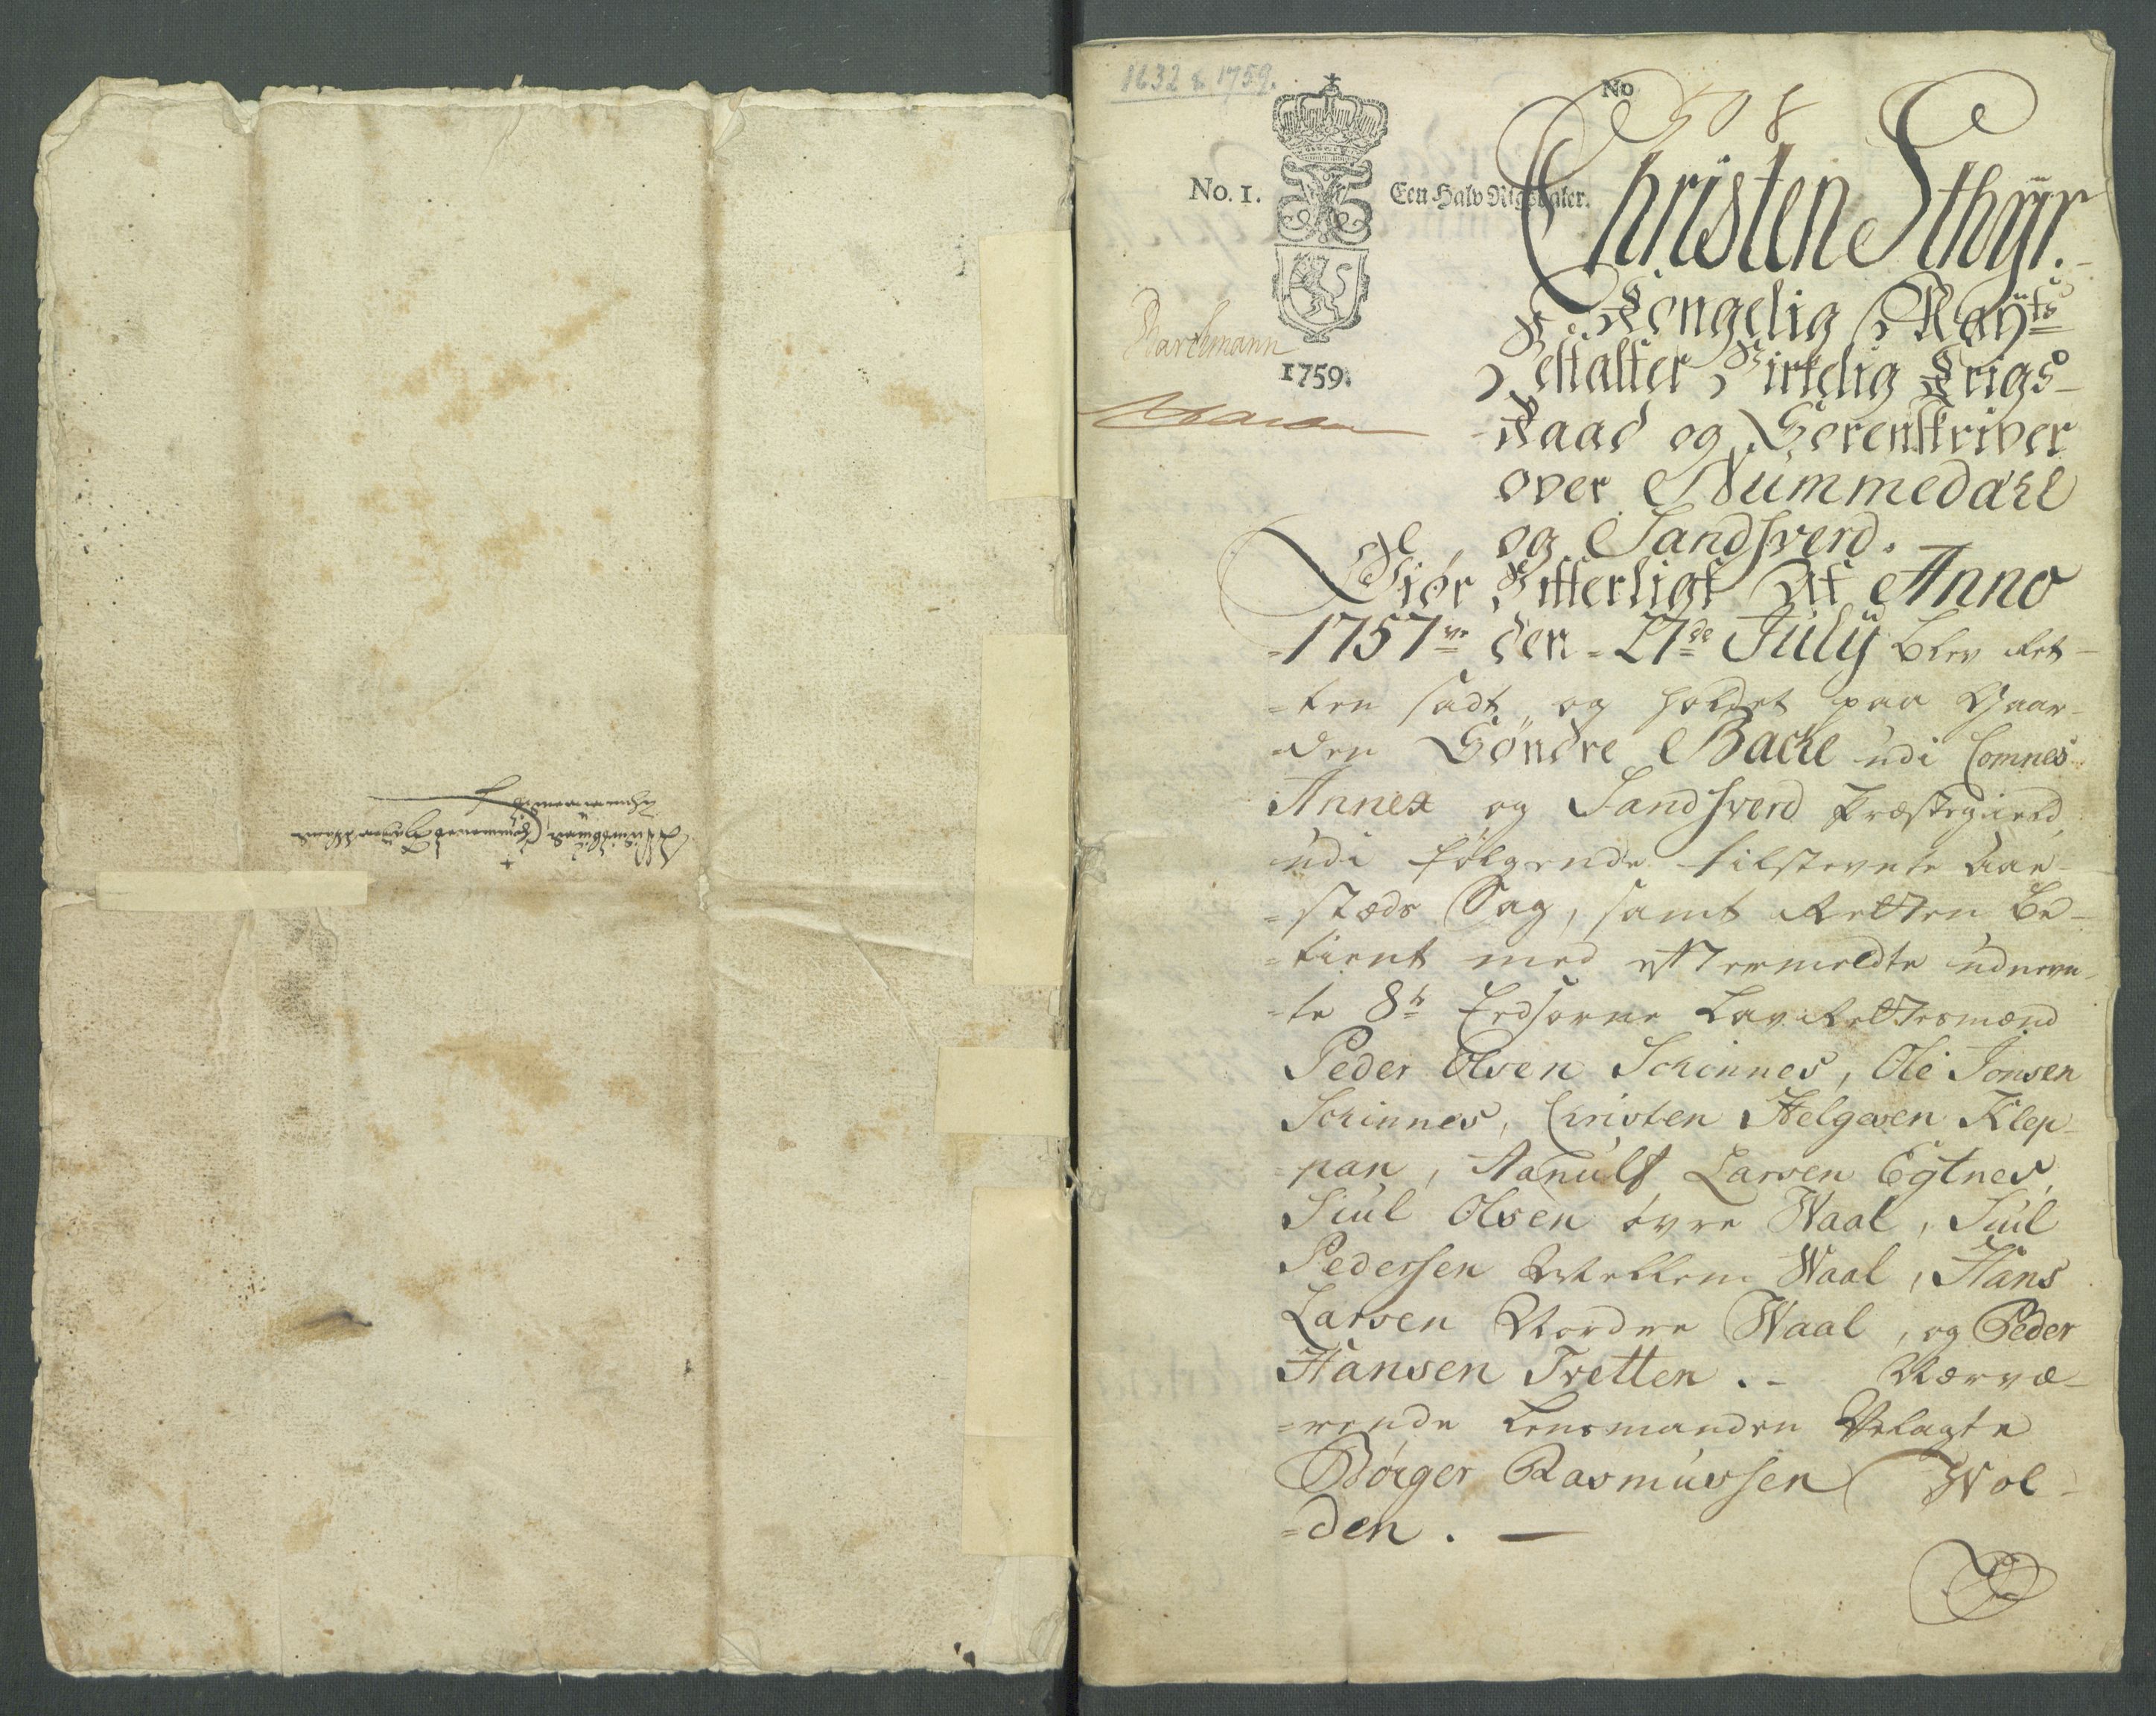 1632 & 1759.
No
508
No. 1.
Een Halv Rigsdaler.
1759.
Christen Sthyr.
Kongelig Mayts
Bestalter Virkelig Krigs-
Raad og Sorenskriver
over Nummedahl
og Sandsverd.
Giør Vitterligt At Anno
1757ve den 27de July blev Ret-
-ten sadt og holdet paa Gaar-
-den Søndre Bache udi Comnes
Annex og Sandsverd Præstegield,
udi følgende tilstevnte Aae-
-stæds Sag, samt Retten be-
-tient med eftermeldte udnevn-
-te 8te Eedsorne LavRettesmænd
Peder Olsen Schinnes, Ole Jonsen
Schinnes, Christen Helgesen Klep-
-pan, Aanulf Larsen Egtnes,
Siul Olsen øvre Waal, Siul
Pedersen Mellem Waal, Hans
Larsen Nordre Waal, og Peder
Hansen Tvetten. - Nærvæ-
-rende Lensmanden Velagte
Børger Rasmussen Wol-
-den. -